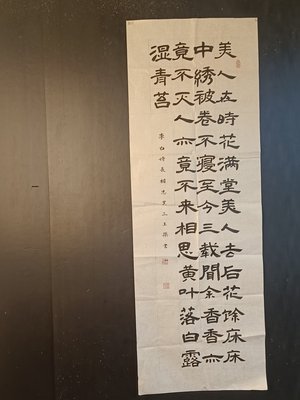 美人在時花满堂美人去后花馀床床
中绣被卷不寝至今三载聞余香香亦
竟不灭人亦竟不来相思黄叶落白露
湿青苔
李白诗長相思